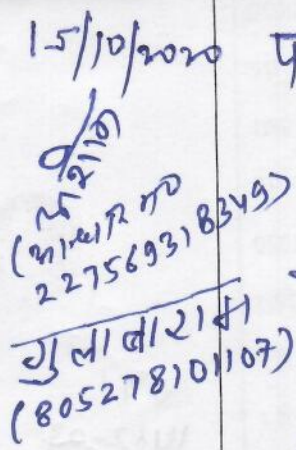 15/10/2020 प
(आधार नं०
227569318349)
गुलाबाराम
(805278101107)